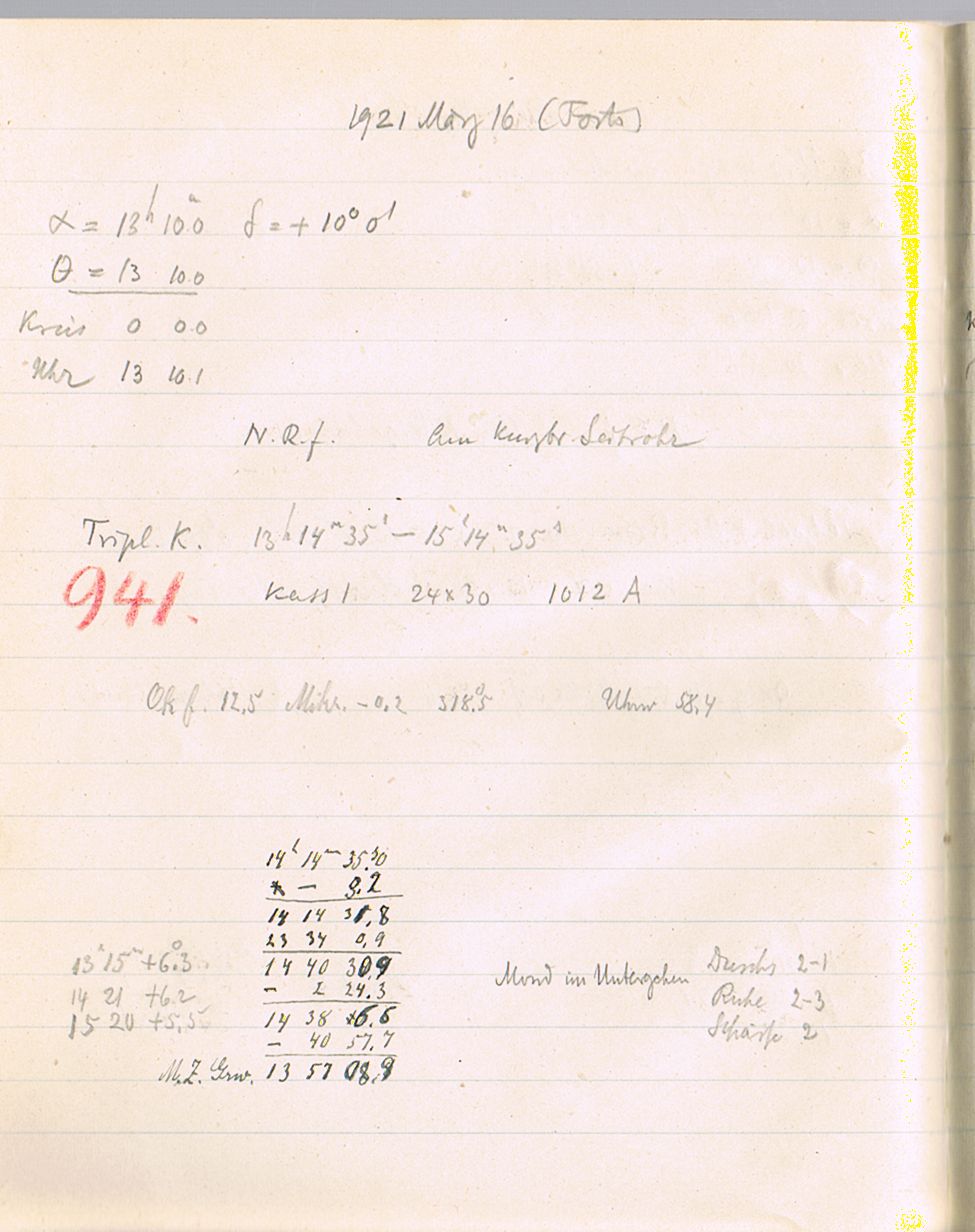 1921 März 16 (Forts)
α = 13ʰ 10ᵐ.0 δ = + 10° 0'
θ = 13 10.0
Kreis 0 0.0
Uhr 13 10.1
N. R. f. Am Kurzbr. Leitrohr
Tripl. K. 13ʰ 14ᵐ 35ˢ — 15ʰ 14ᵐ 35ˢ
941. Kass 1 24×30 1012 A
Ok f. 12.5 Mikr. - 0.2 318°.5 Uhrw 58.4
14ʰ 14ᵐ 35.ˢ0
— 3.2
14 14 31,8
23 34 0,9
13ʰ 15ᵐ +6°.3 14 40 30,9 Mond im Untergehen Durchs 2-1
14 21 +6.2 - 2 24.3 Ruhe 2-3
15 20 +5.5 14 38 6.6 Schärfe 2
- 40 57.7
M.Z. Grw. 13 57 08.9